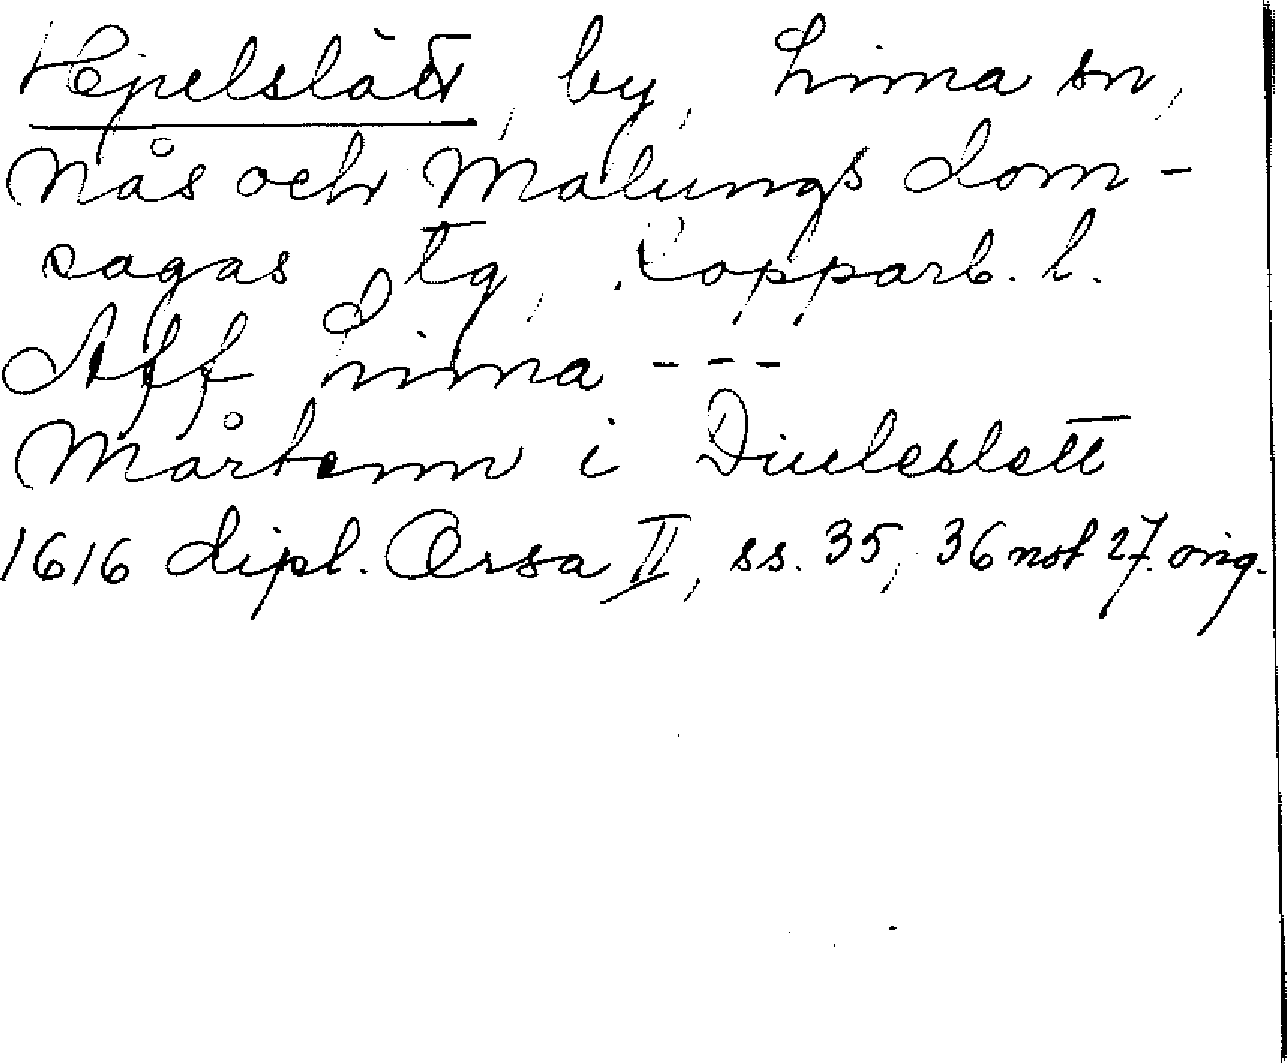 Hjelslätt, by, Lima sn,
Nås och Malungs dom-
sagas tg, Kopparb. l.
Aff Lima ---
Mårtenn i Diuleslett
1616 dipl. Orsa II, ss. 35, 36 not 27. orig.